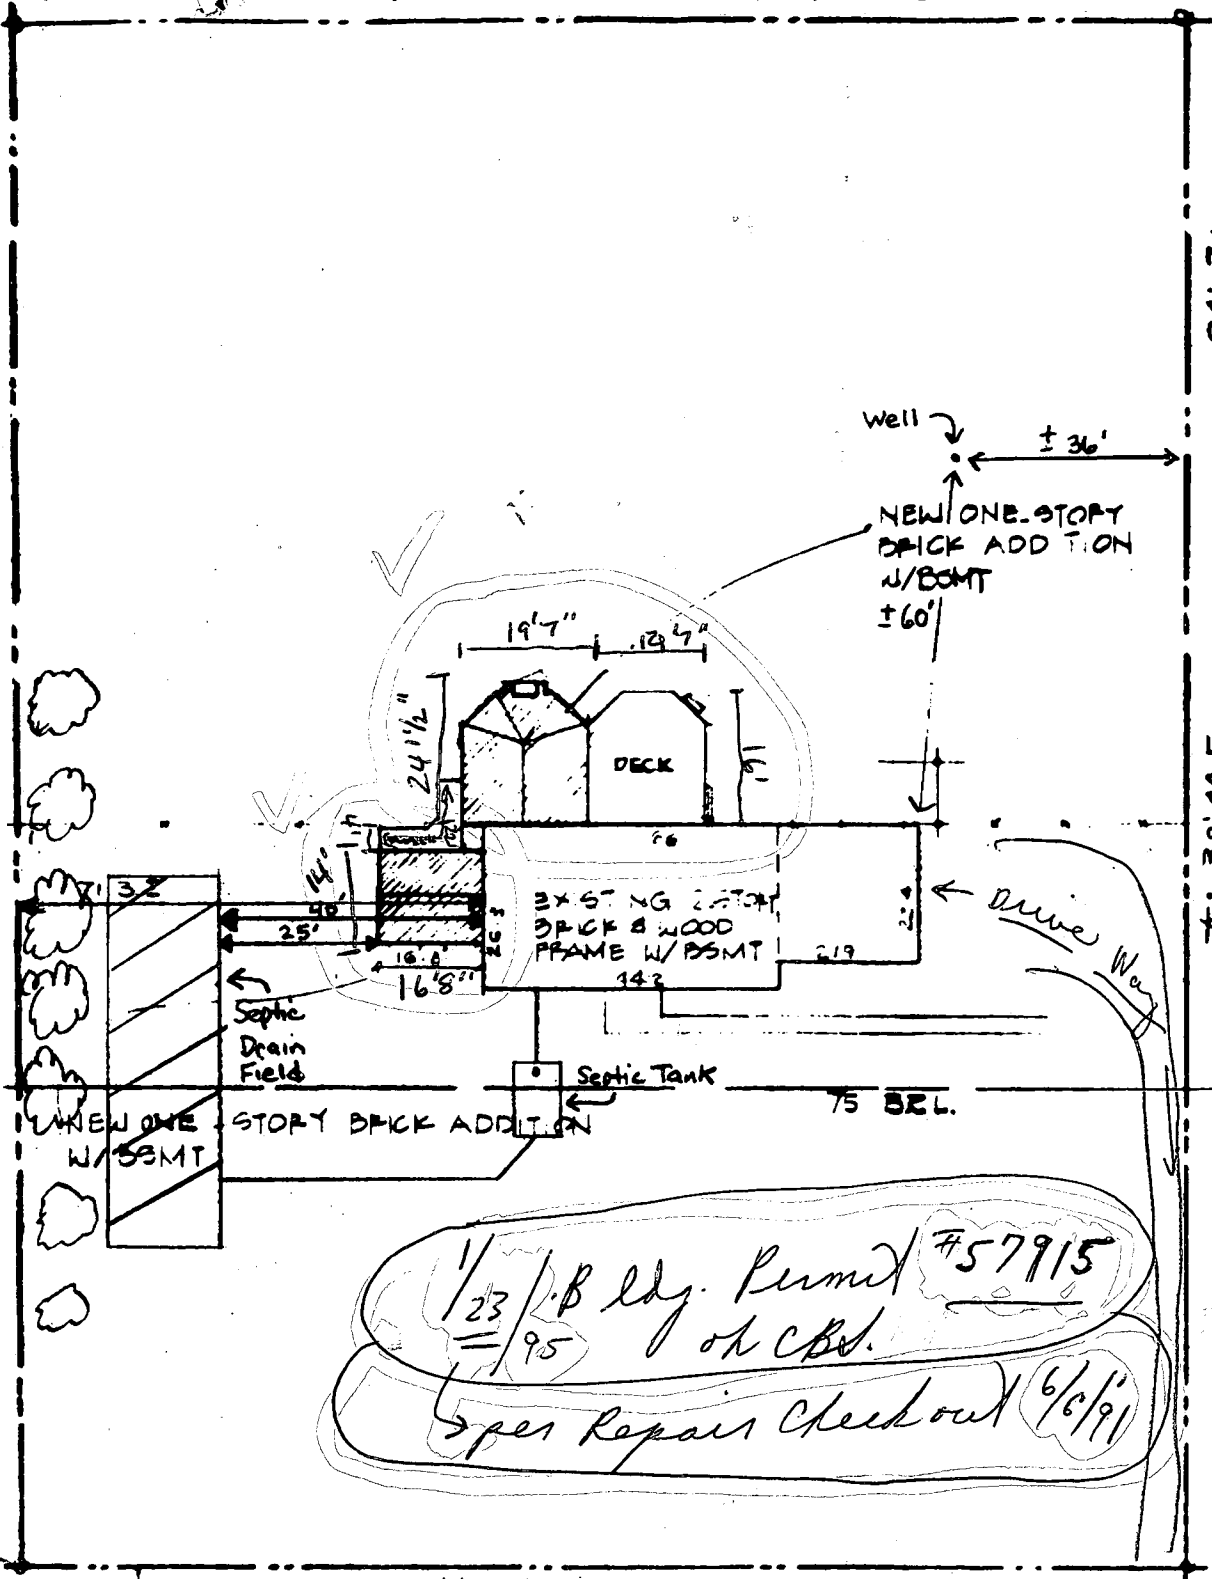 Well
± 36'
NEW ONE-STORY
BRICK ADD TION
W/BSMT
±60'
19'7"
24 1½"
DECK
14'
EXIST NG 2 STORY
BRICK & WOOD
FRAME W/BSMT
Drive Way
25'
16'8"
Septic
Drain
Field
Septic Tank
75 BRL.
NEW ONE - STORY BRICK ADDITION
W/BSMT
1/23/95 Bldg. Permit #57915
ok CBS.
per Repair Checkout 6/6/91